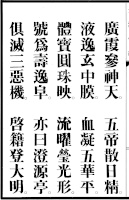 廣霞參神天　五帝散日精
液逸玄中膜　血凝五華平
體寶圓珠映　流曜瑩光形
號爲壽逸阜　亦曰澄源亭
俱滅三惡機　啓籍登大明